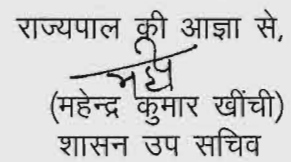 राज्यपाल की आज्ञा से,
(महेन्द्र कुमार खींची)
शासन उप सचिव